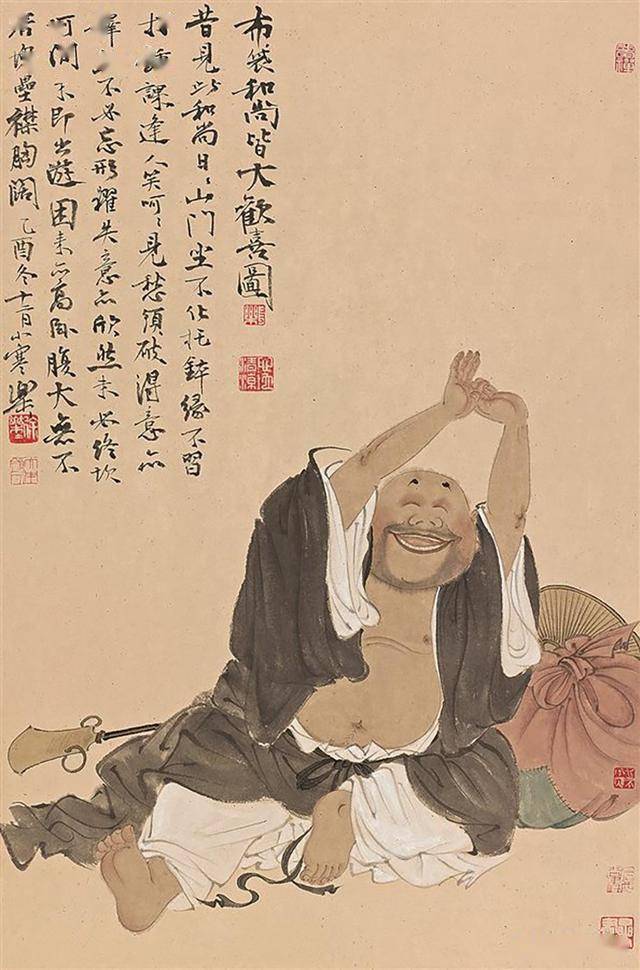 布袋和尚皆大歡喜圖
昔見此和尚日〻山門坐不化托鉢緣不習
打課逢人笑呵〻見愁須破得意亦
不必忘形躍失意亦欣然未必終坎
即出遊困來亦高臥腹大無不
壘襟胸闊乙酉冬十月小寒樂